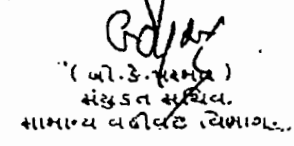 ( બી.કે.પરમાર )
સંયુકત સચિવ.
સામાન્ય વહીવટ વિભાગ.